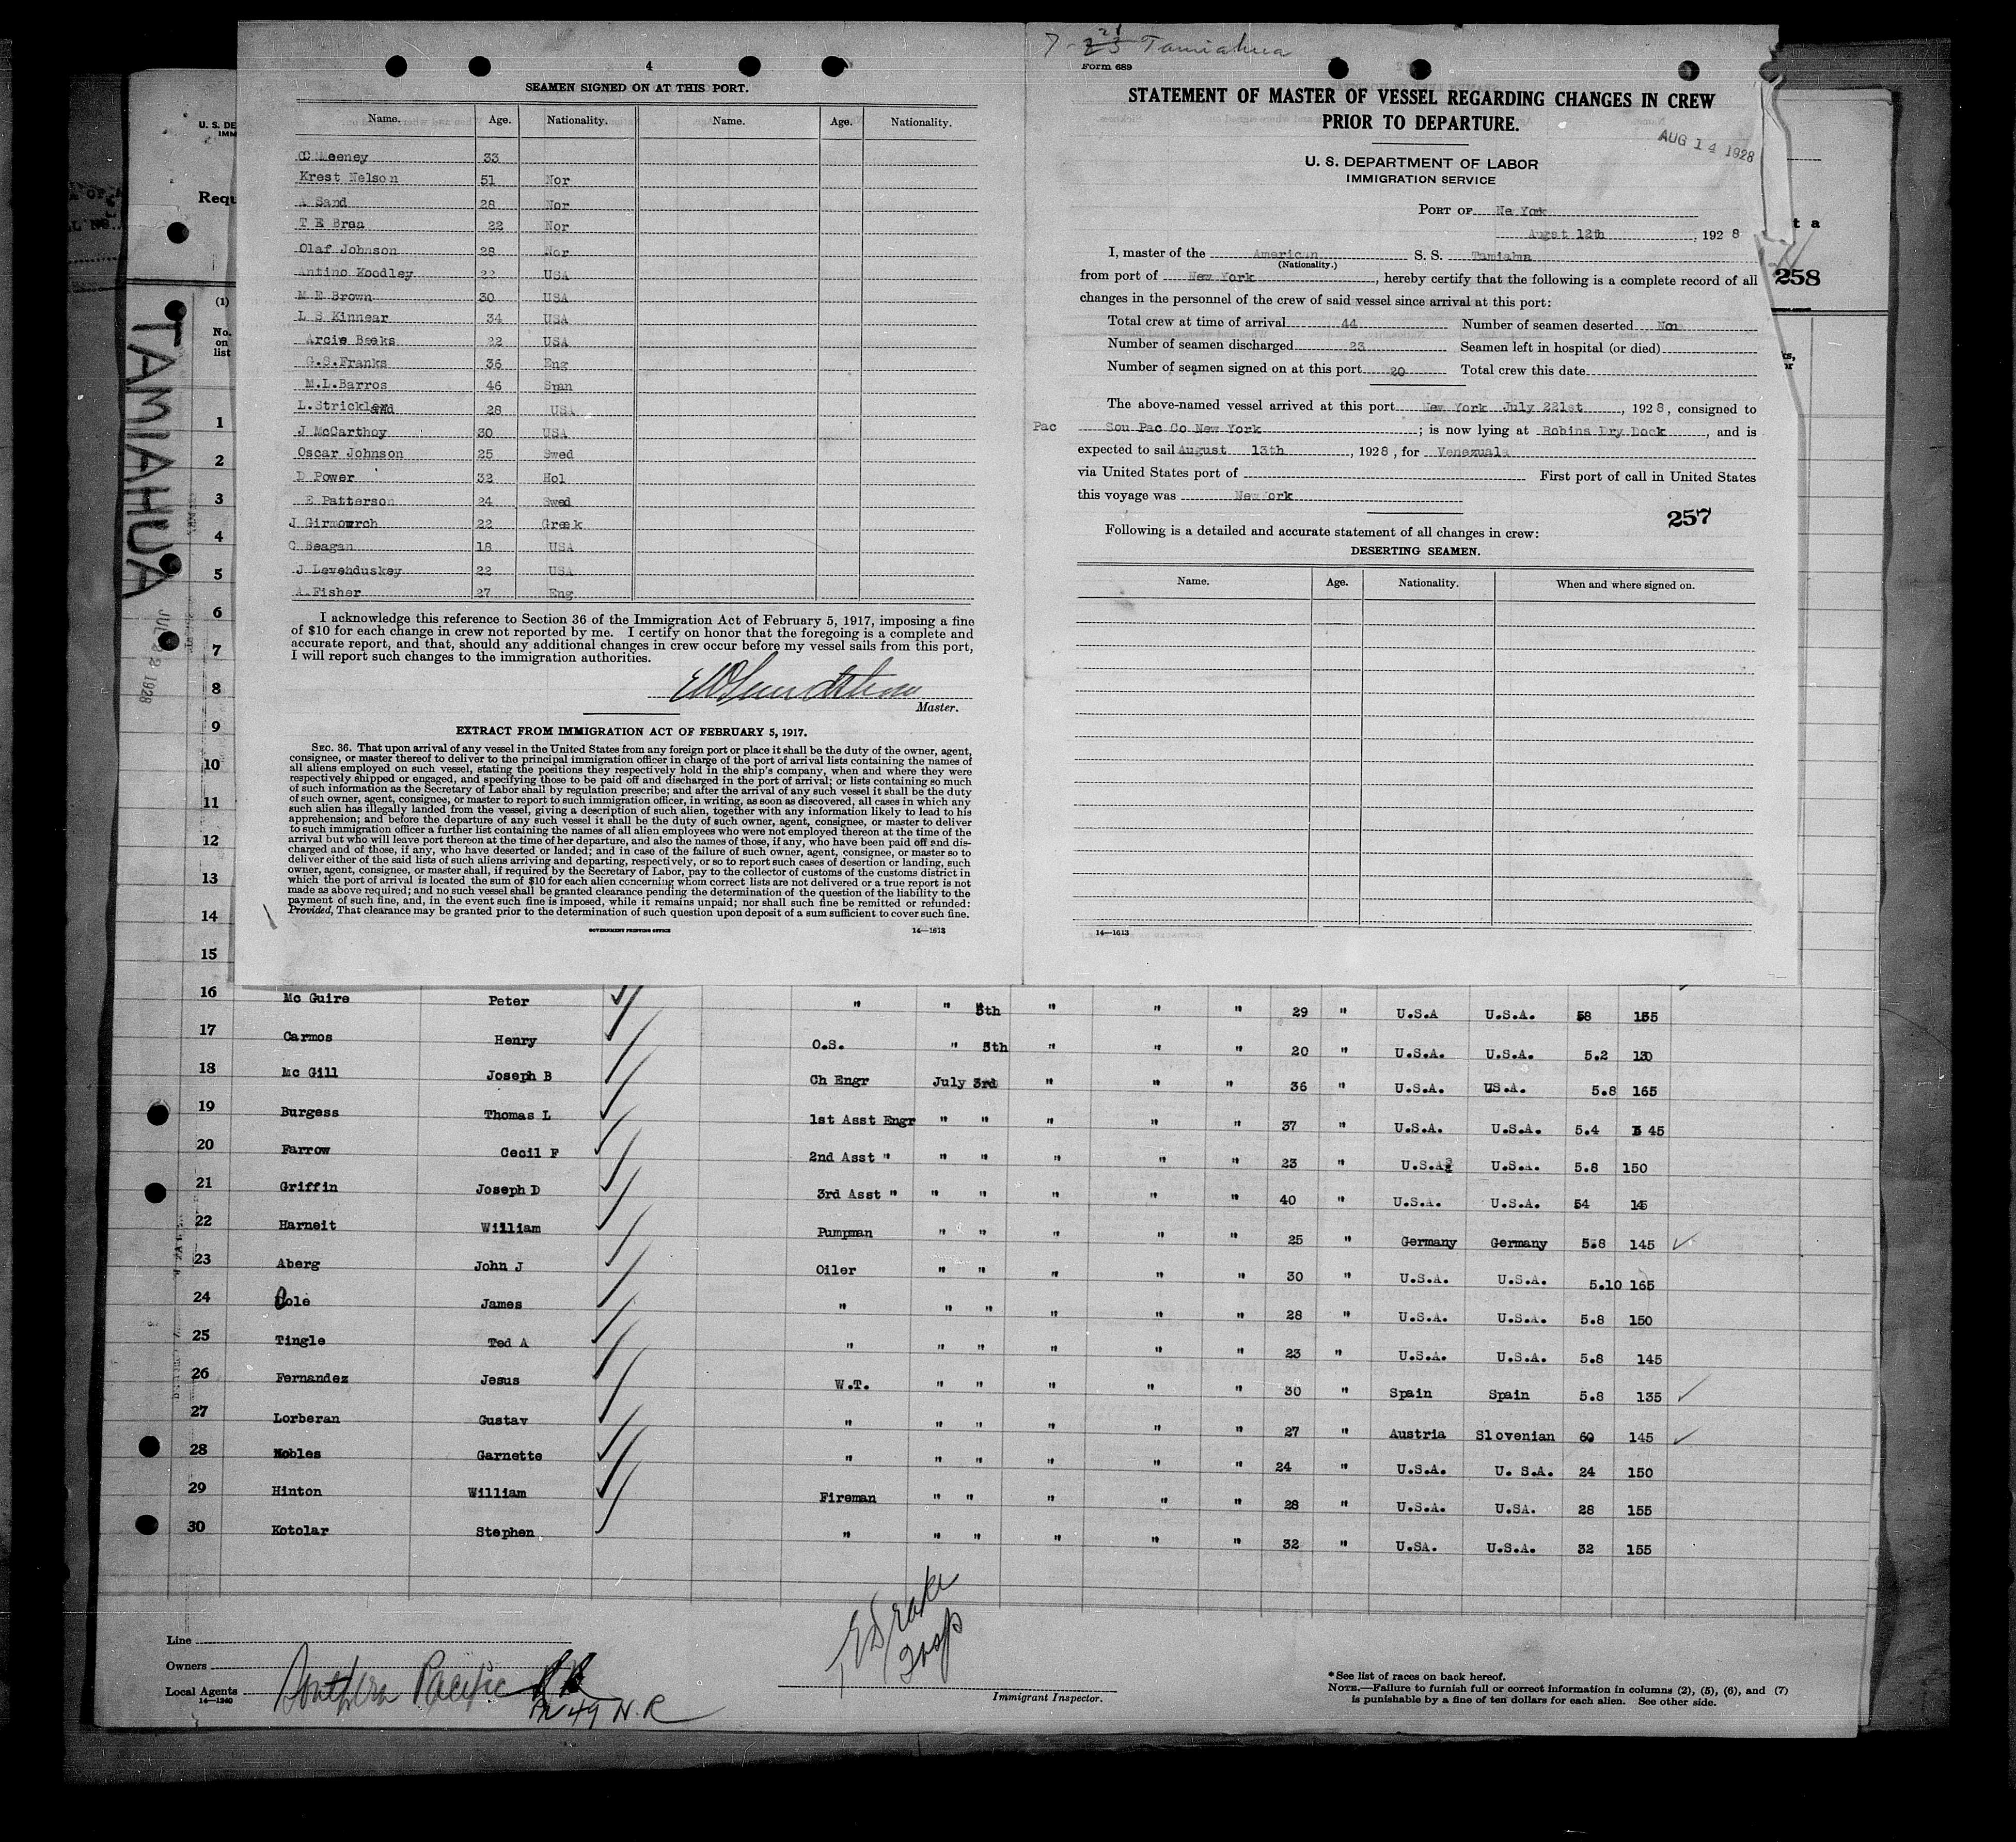 4
SEAMEN SIGNED ON AT THIS PORT.
Name. Age. Nationality. Name. Age. Nationality.
CC Meeney 33
Krest Nelson 51 Nor
A Sand 28 Nor
T E Braa 22 Nor
Olaf Johnson 28 Nor
Antino Koodley 22 USA
M E Brown 30 USA
L S Kinnear 34 USA
Arcie Beeks 22 USA
G.S.Franks 36 Eng
M.L.Barros 46 Span
L.Strickland 28 USA
J McCarthoy 30 USA
Oscar Johnson 25 Swed
D Power 32 Hol
E Patterson 24 Swed
J Girmowrch 22 Greek
C Beagan 18 USA
J.Levehduskey 22 USA
A.Fisher 27 Eng
I acknowledge this reference to Section 36 of the Immigration Act of February 5, 1917, imposing a fine
of $10 for each change in crew not reported by me. I certify on honor that the foregoing is a complete and
accurate report, and that, should any additional changes in crew occur before my vessel sails from this port,
I will report such changes to the immigration authorities.
Master.
EXTRACT FROM IMMIGRATION ACT OF FEBRUARY 5, 1917.
SEC. 36. That upon arrival of any vessel in the United States from any foreign port or place it shall be the duty of the owner, agent,
consignee, or master thereof to deliver to the principal immigration officer in charge of the port of arrival lists containing the names of
all aliens employed on such vessel, stating the positions they respectively hold in the ship's company, when and where they were
respectively shipped or engaged, and specifying those to be paid off and discharged in the port of arrival; or lists containing so much
of such information as the Secretary of Labor shall by regulation prescribe; and after the arrival of any such vessel it shall be the duty
of such owner, agent, consignee, or master to report to such immigration officer, in writing, as soon as discovered, all cases in which any
such alien has illegally landed from the vessel, giving a description of such alien, together with any information likely to lead to his
apprehension; and before the departure of any such vessel it shall be the duty of such owner, agent, consignee, or master to deliver
to such immigration officer a further list containing the names of all alien employees who were not employed thereon at the time of the
arrival but who will leave port thereon at the time of her departure, and also the names of those, if any, who have been paid off and dis-
charged and of those, if any, who have deserted or landed; and in case of the failure of such owner, agent, consignee, or master so to
deliver either of the said lists of such aliens arriving and departing, respectively, or so to report such cases of desertion or landing, such
owner, agent, consignee, or master shall, if required by the Secretary of Labor, pay to the collector of customs of the customs district in
which the port of arrival is located the sum of $10 for each alien concerning whom correct lists are not delivered or a true report is not
made as above required; and no such vessel shall be granted clearance pending the determination of the question of the liability to the
payment of such fine, and, in the event such fine is imposed, while it remains unpaid; nor shall such fine be remitted or refunded:
Provided, That clearance may be granted prior to the determination of such question upon deposit of a sum sufficient to cover such fine.
GOVERNMENT PRINTING OFFICE 14—1613
7-21 Tamiahua
Form 689
STATEMENT OF MASTER OF VESSEL REGARDING CHANGES IN CREW
PRIOR TO DEPARTURE.
AUG 14 1928
U. S. DEPARTMENT OF LABOR
IMMIGRATION SERVICE
PORT OF Ne York
Augst 12th, 1928
I, master of the American S. S. Tamiahua
(Nationality.)
from port of New York, hereby certify that the following is a complete record of all
changes in the personnel of the crew of said vessel since arrival at this port:
Total crew at time of arrival 44 Number of seamen deserted Non
Number of seamen discharged 23 Seamen left in hospital (or died)
Number of seamen signed on at this port 20 Total crew this date
The above-named vessel arrived at this port New York July 221st, 1928, consigned to
Pac Sou Pac Co New York; is now lying at Robins Dry Dock, and is
expected to sail August 13th, 1928, for Venezuala
via United States port of First port of call in United States
this voyage was New ork
257
Following is a detailed and accurate statement of all changes in crew:
DESERTING SEAMEN.
Name. Age. Nationality. When and where signed on.
14—1613
258
t a
U. S. DE
IMM
Requ
(1)
No.
on
list
TAMIAHUA
JUL 22 1928
1
2
3
4
5
6
7
8
9
10
11
12
13
14
15
16 Mc Guire Peter " " 5th " " " 29 " U.S.A U.S.A. 58 155
17 Carmos Henry O.S. " 5th " " " 20 " U.S.A. U.S.A. 5.2 130
18 Mc Gill Joseph B Ch Engr July 3rd " " " 36 " U.S.A. US.A. 5.8 165
19 Burgess Thomas L 1st Asst Engr " " " " " 37 " U.S.A. U.S.A. 5.4 145
20 Farrow Cecil F 2nd Asst " " " " " " 23 " U.S.A. U.S.A. 5.8 150
21 Griffin Joseph D 3rd Asst " " " " " " 40 " U.S.A. U.S.A. 54 145
22 Harneit William Pumpman " " " " " 25 " Germany Germany 5.8 145
23 Aberg John J Oiler " " " " " 30 " U.S.A. U.S.A. 5.10 165
24 Cole James " " " " " " 28 " U.S.A. U.S.A. 5.8 150
25 Tingle Ted A " " " " " " 23 " U.S.A. U.S.A. 5.8 145
26 Fernandez Jesus W.T. " " " " " 30 " Spain Spain 5.8 135
27 Lorberan Gustav " " " " " " 27 " Austria Slovenian 60 145
28 Nobles Garnette " " " " " " 24 " U.S.A. U. S.A. 24 150
29 Hinton William Fireman " " " " " 28 " U.S.A. U.SA. 28 155
30 Kotolar Stephen " " " " " " 32 " U.SA. U.S.A. 32 155
Line
Owners
Local Agents Southern Pacific
14—1240
Pr 49 N.R
Immigrant Inspector.
*See list of races on back hereof.
NOTE.—Failure to furnish full or correct information in columns (2), (5), (6), and (7)
is punishable by a fine of ten dollars for each alien. See other side.